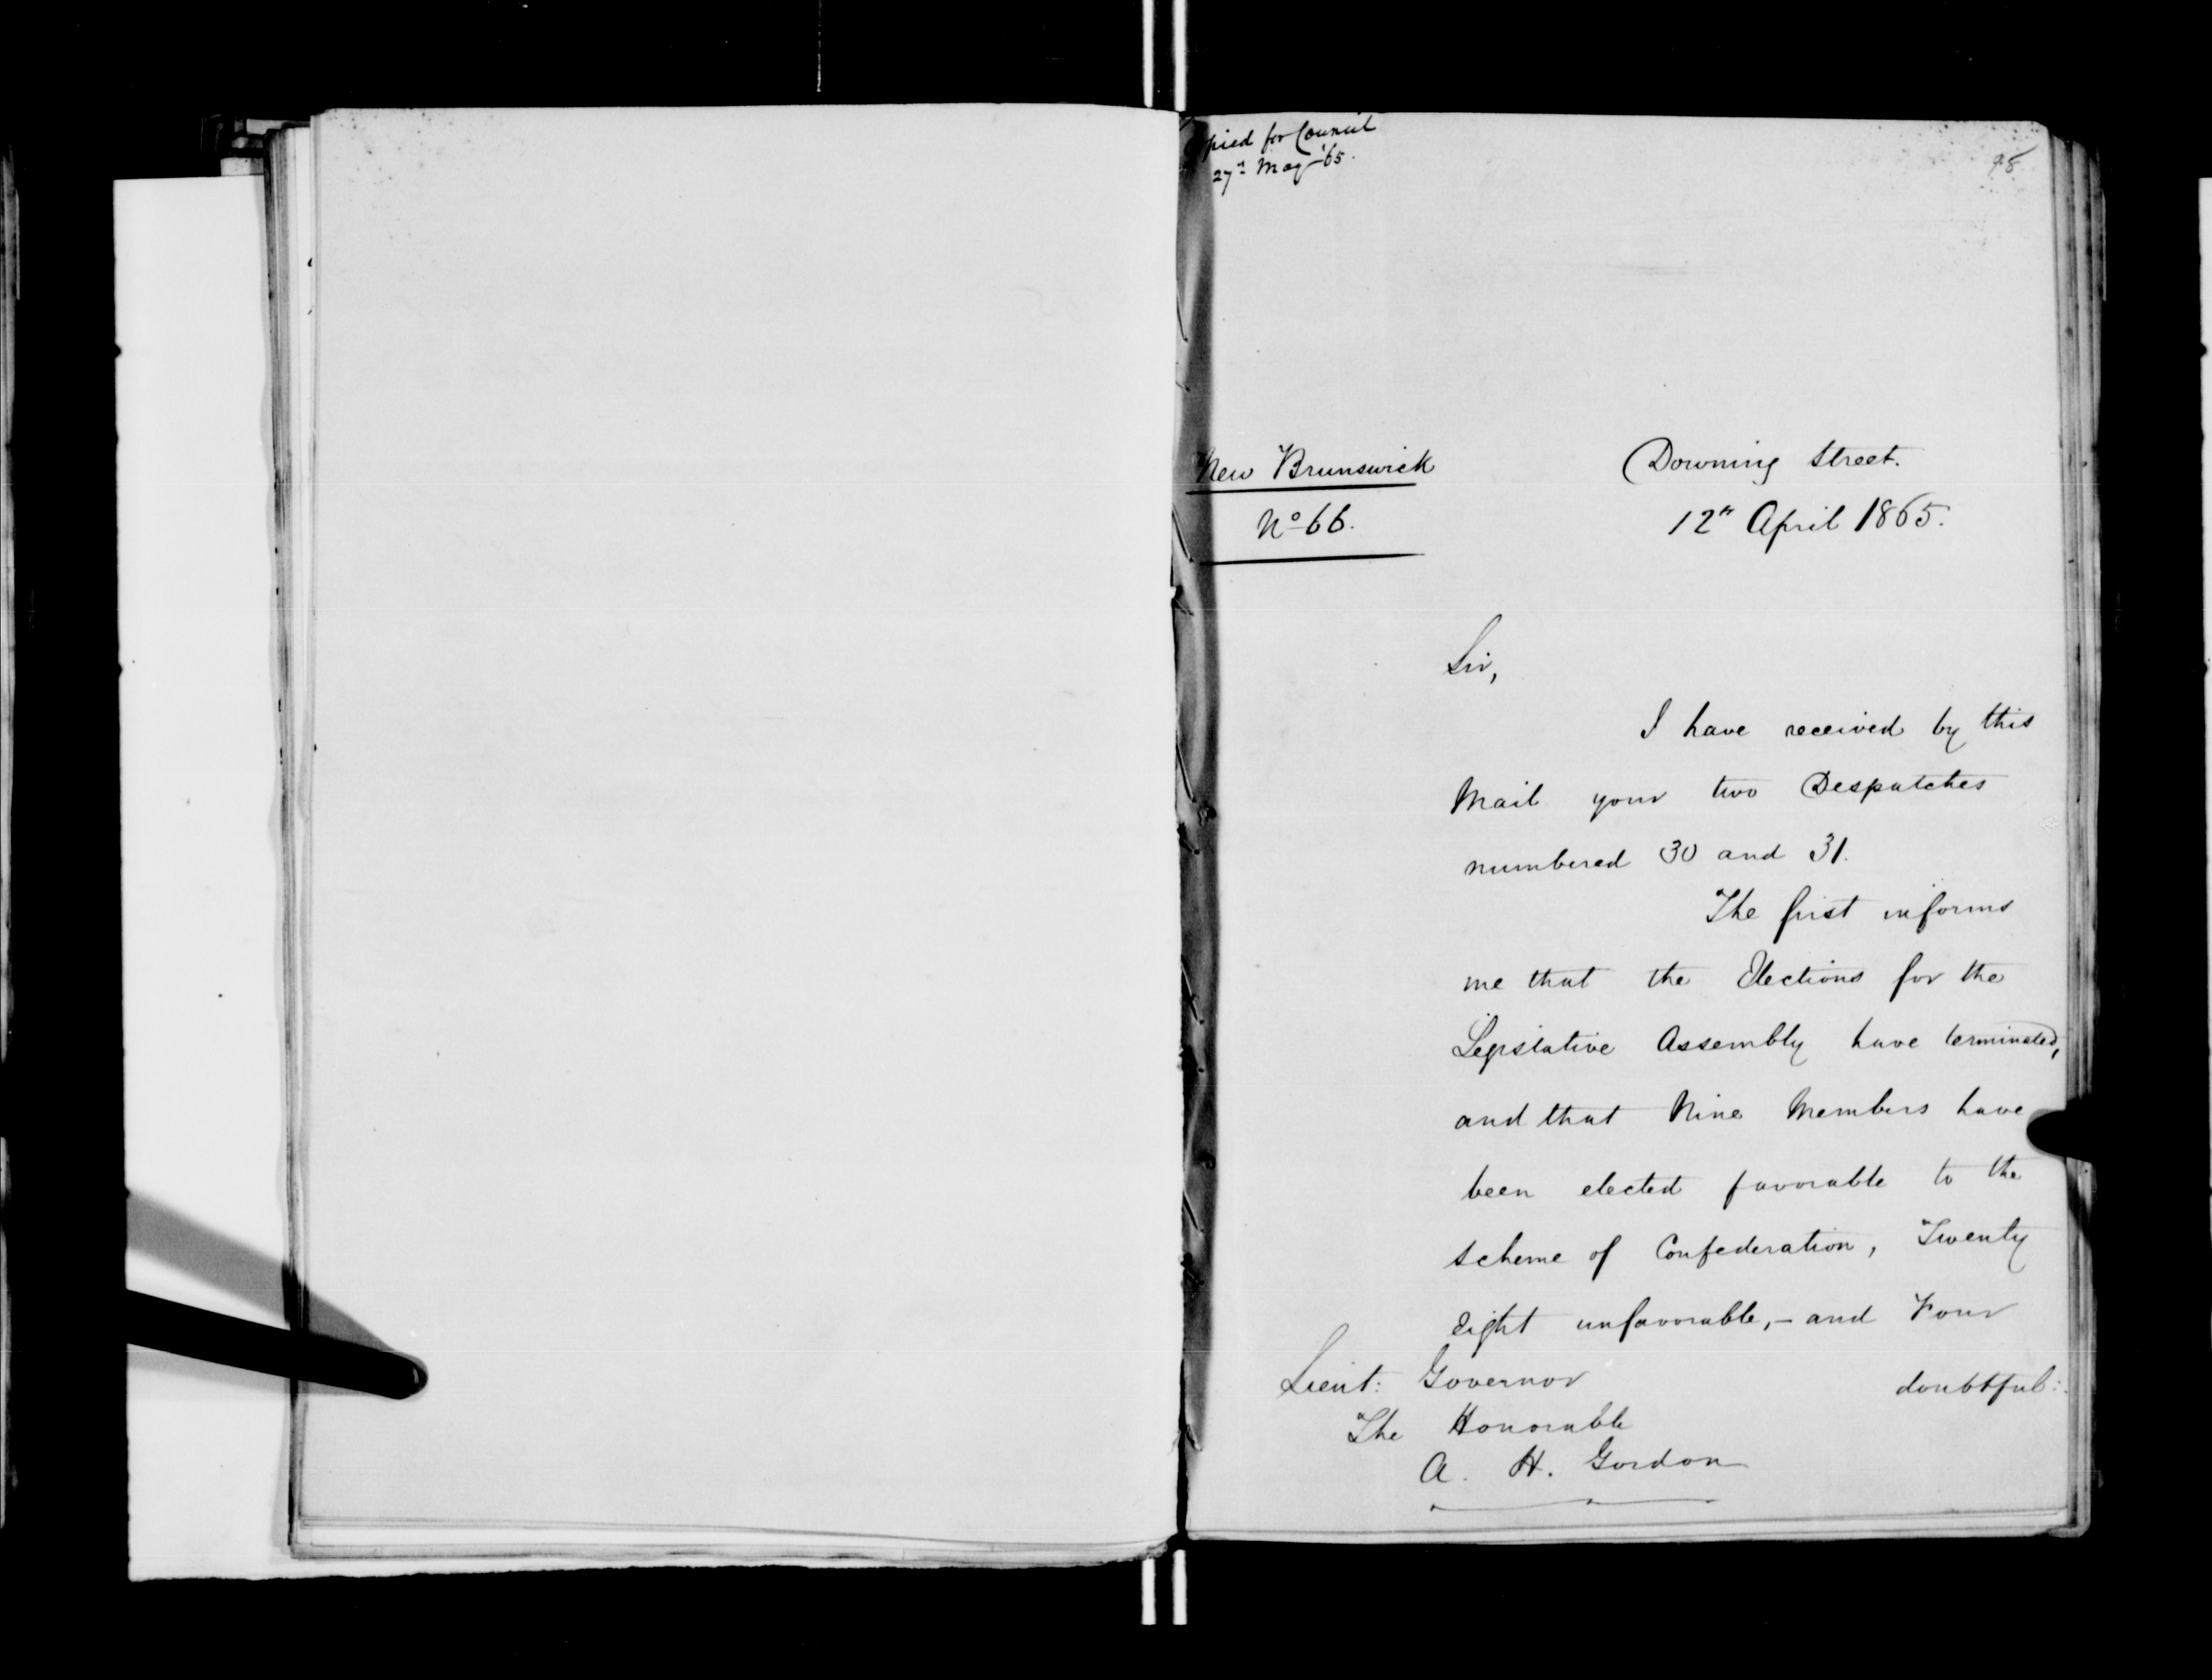 pied for Council
27th May '65.
98
New Brunswick
No 66.
Downing Street.
12th April 1865.
Sir,
I have received by this
Mail your two Despatches
numbered 30 and 31.
The first informs
me that the Elections for the
Legislative Assembly have terminated,
and that Nine Members have
been elected favorable to the
scheme of Confederation, Twenty
eight unfavorable, - and Four
doubtful:
Lieut: Governor
The Honorable
A. H. Gordon